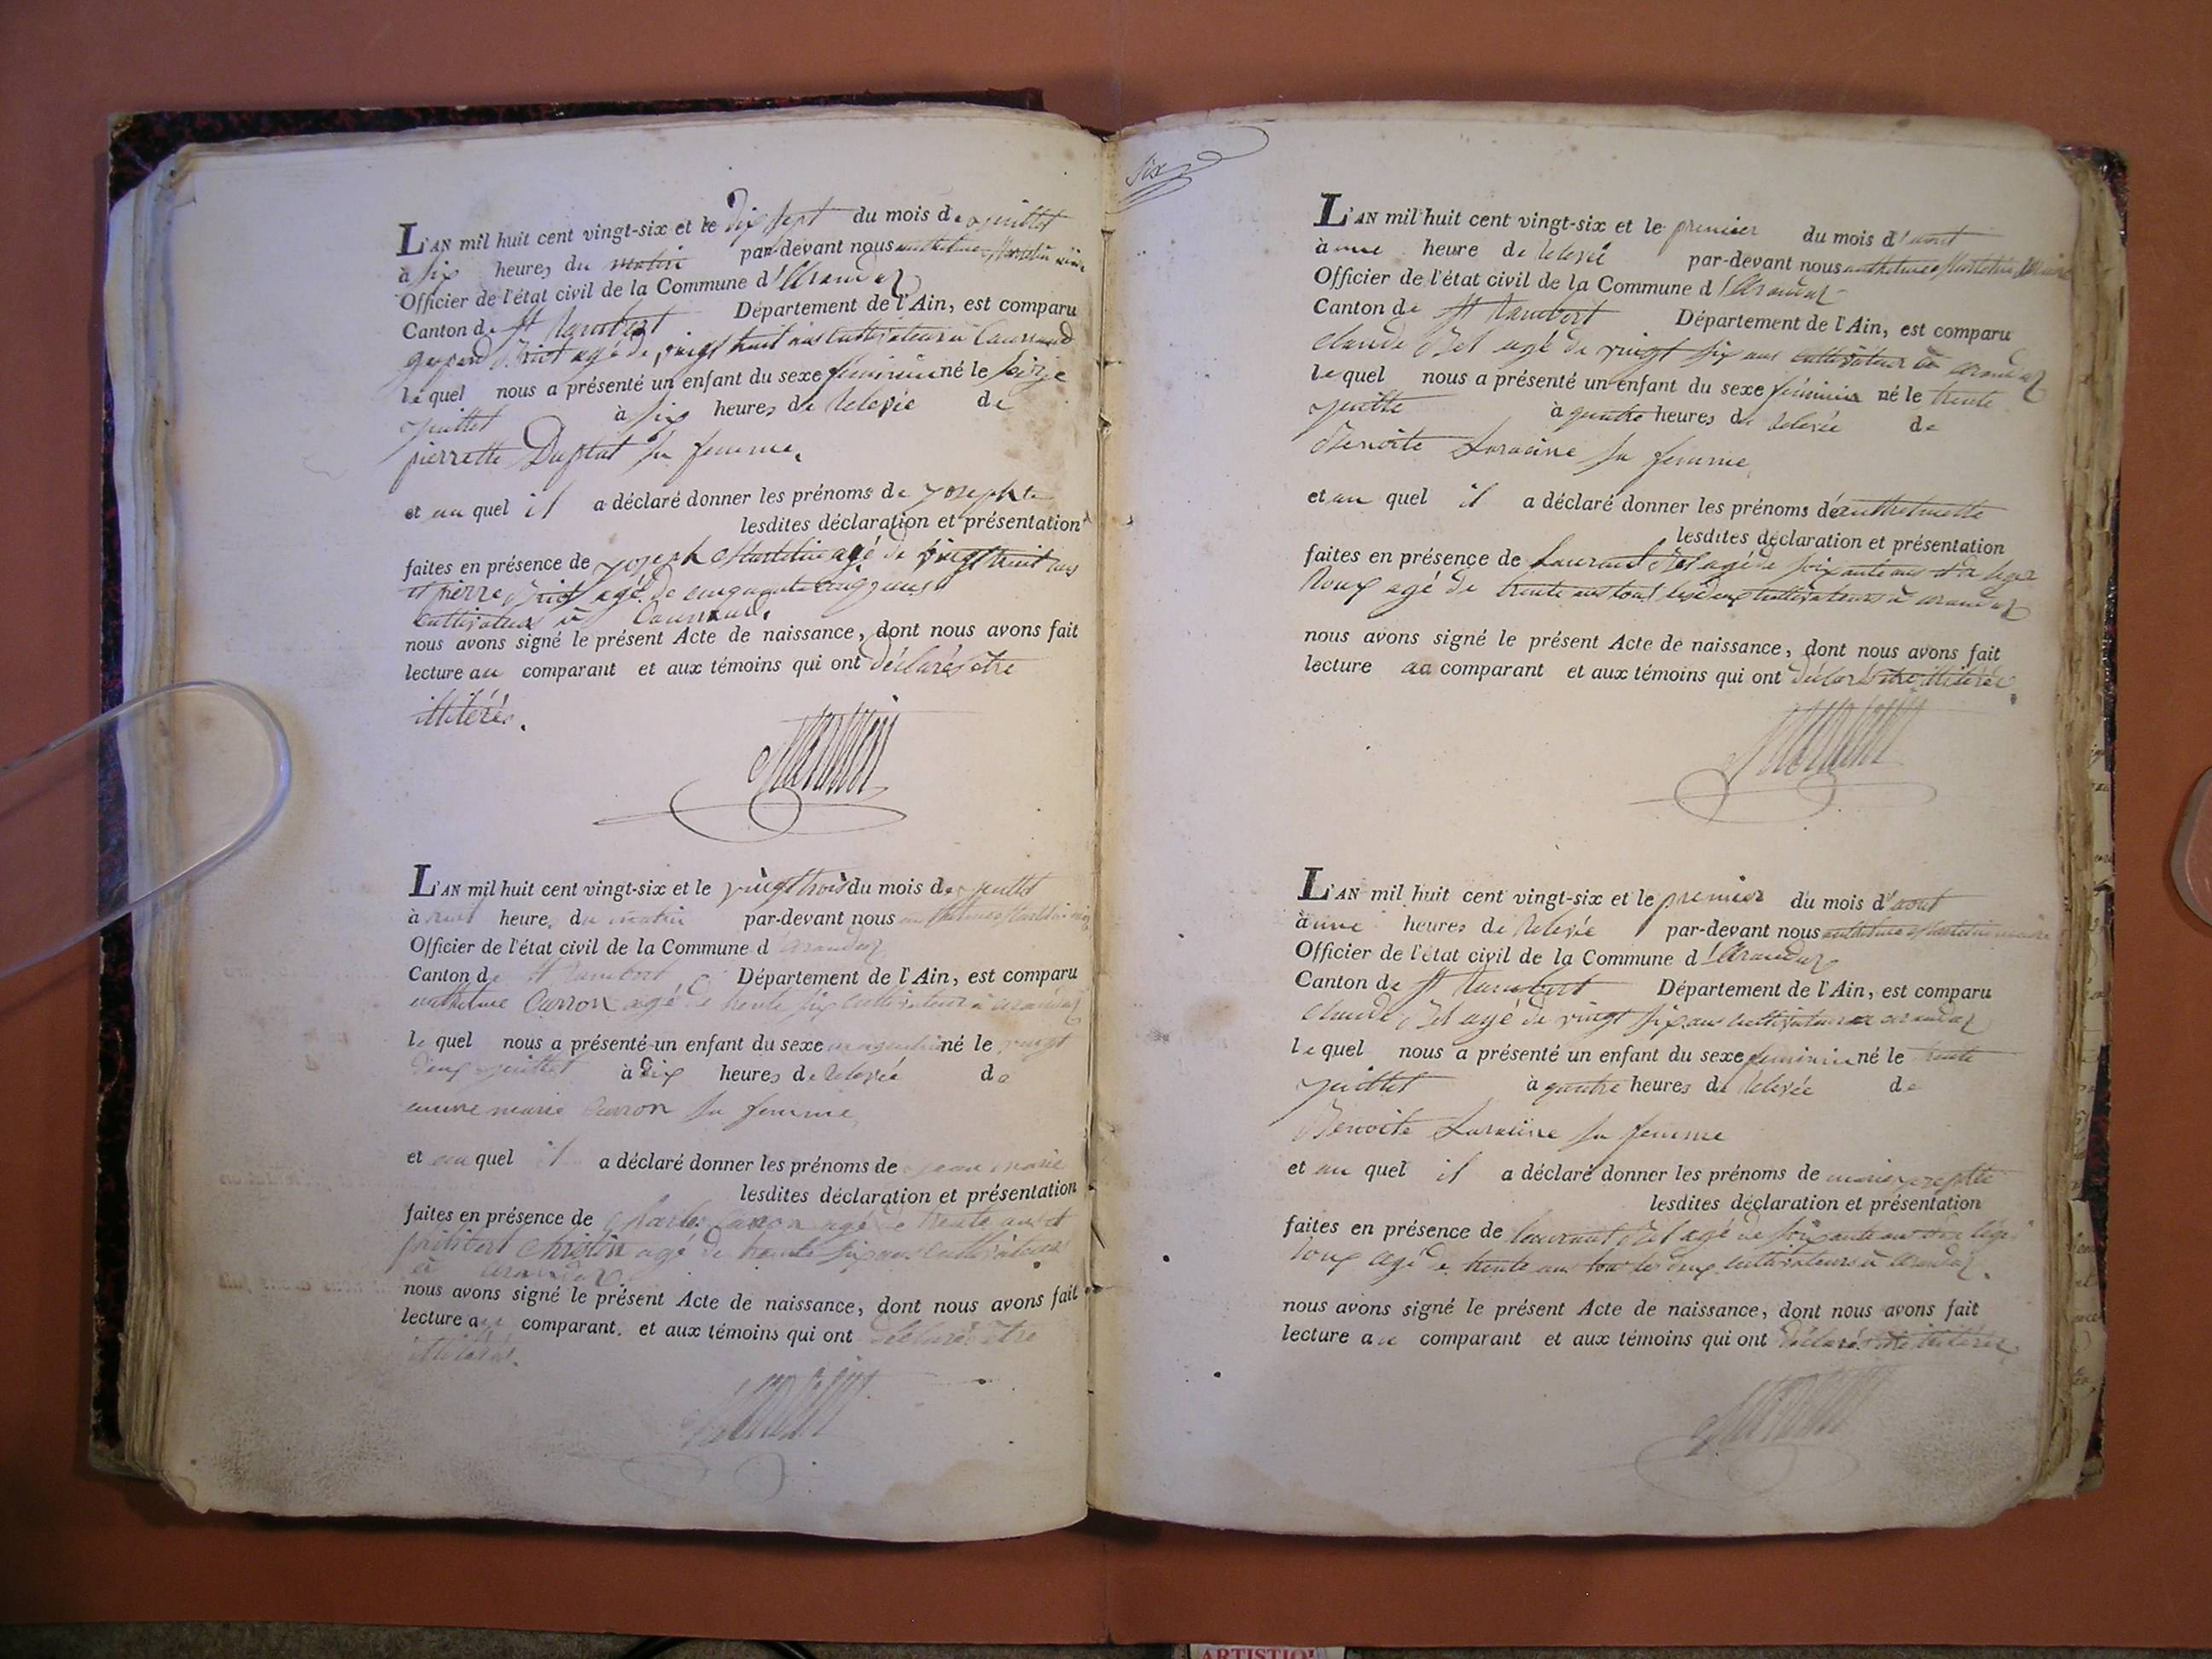 L'AN mil huit cent vingt-six et le dix sept du mois de juillet
à six heures du matin par-devant nous anthelme Martin maire
Officier de l'état civil de la Commune d'Arandaz
Canton de St Rambert Département de l'Ain, est comparu
agé de vingt huit ans cultivateur a
le quel nous a présenté un enfant du sexe feminin né le seize
juillet à six heures de relevée de
pierrette Duplat sa femme,
et au quel il a déclaré donner les prénoms de josephte
lesdites déclaration et présentation
faites en présence de joseph agé de vingt huit ans
et pierre agé de cinquante cinq ans
cultivateurs à
nous avons signé le présent Acte de naissance, dont nous avons fait
lecture au comparant et aux témoins qui ont déclarés être
illitérés.
Martin
L'AN mil huit cent vingt-six et le vingt trois du mois de juillet
à heure du matin par-devant nous anthelme Martin
Officier de l'état civil de la Commune d arandaz
Canton de St Rambert Département de l'Ain, est comparu
anthelme Carron agé de trente six cultivateur a arandaz
le quel nous a présenté un enfant du sexe masculin né le vingt
deux juillet à dix heures de relevée de
anne marie Carron sa femme,
et au quel il a déclaré donner les prénoms de jean marie
lesdites déclaration et présentation
faites en présence de Charles Carron agé de trente ans et
philibert Christin agé de trente six ans cultivateurs
à arandaz
nous avons signé le présent Acte de naissance, dont nous avons fait
lecture au comparant. et aux témoins qui ont déclarés être
illitérés.
Martin
six
L'AN mil huit cent vingt-six et le premier du mois d'aout
à une heure de relevée par-devant nous anthelme Martin maire
Officier de l'état civil de la Commune d'Arandaz
Canton de St Rambert Département de l'Ain, est comparu
claude Bel agé de vingt six ans cultivateur à arandaz
le quel nous a présenté un enfant du sexe féminin né le trente
juillet à quatre heures de relevée de
Benoite Laracine sa femme,
et au quel il a déclaré donner les prénoms d'anthelmette
lesdites déclaration et présentation
faites en présence de Laurant Bel agé de soixante ans et de leger
Roux agé de trente ans tous les deux cultivateurs à arandaz
nous avons signé le présent Acte de naissance, dont nous avons fait
lecture au comparant et aux témoins qui ont déclarés être illitérés.
Martin
L'AN mil huit cent vingt-six et le premier du mois d'aout
à une heures de relevée par-devant nous anthelme Martin maire
Officier de l'état civil de la Commune d'Arandaz
Canton de St Rambert Département de l'Ain, est comparu
claude Bel agé de vingt six ans cultivateur a arandaz
le quel nous a présenté un enfant du sexe feminin né le trente
juillet à quatre heures de relevée de
Benoite Laracine sa femme
et au quel il a déclaré donner les prénoms de marie josephte
lesdites déclaration et présentation
faites en présence de laurant Bel agé de soixante ans et de léger
roux agé de trente ans tous les deux cultivateurs à arandaz.
nous avons signé le présent Acte de naissance, dont nous avons fait
lecture au comparant et aux témoins qui ont déclarés être illitérés
Martin
ARTISTIQ